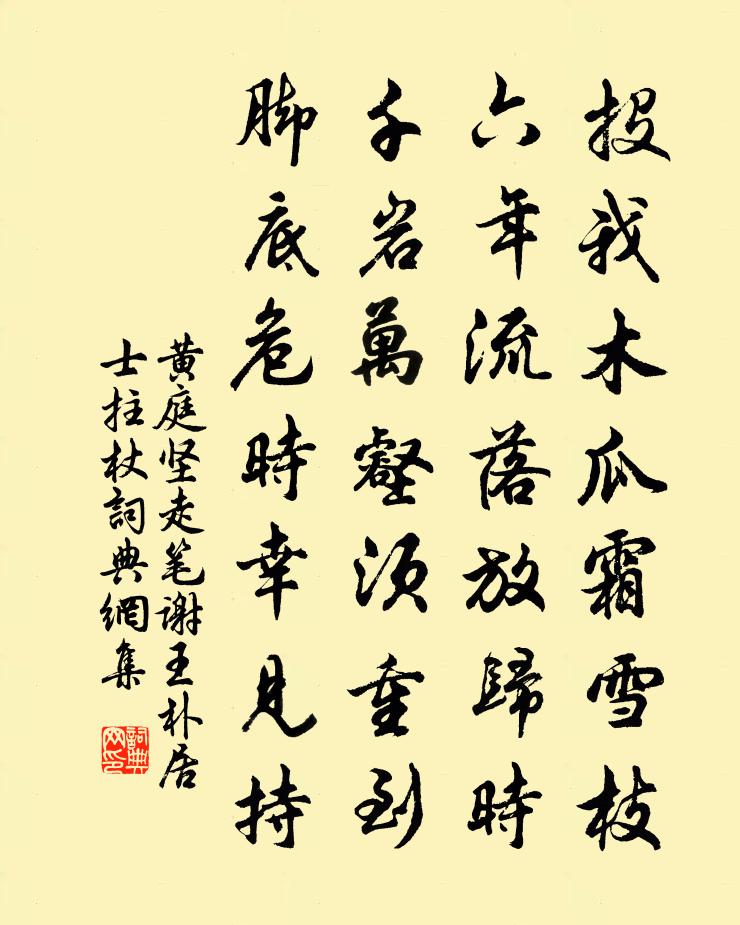 投我木瓜霜雪枝
六年流落放歸時
千岩萬壑須重到
脚底危時幸見持
黄庭坚走笔谢王朴居
士拄杖詞典網集
詞典
网印